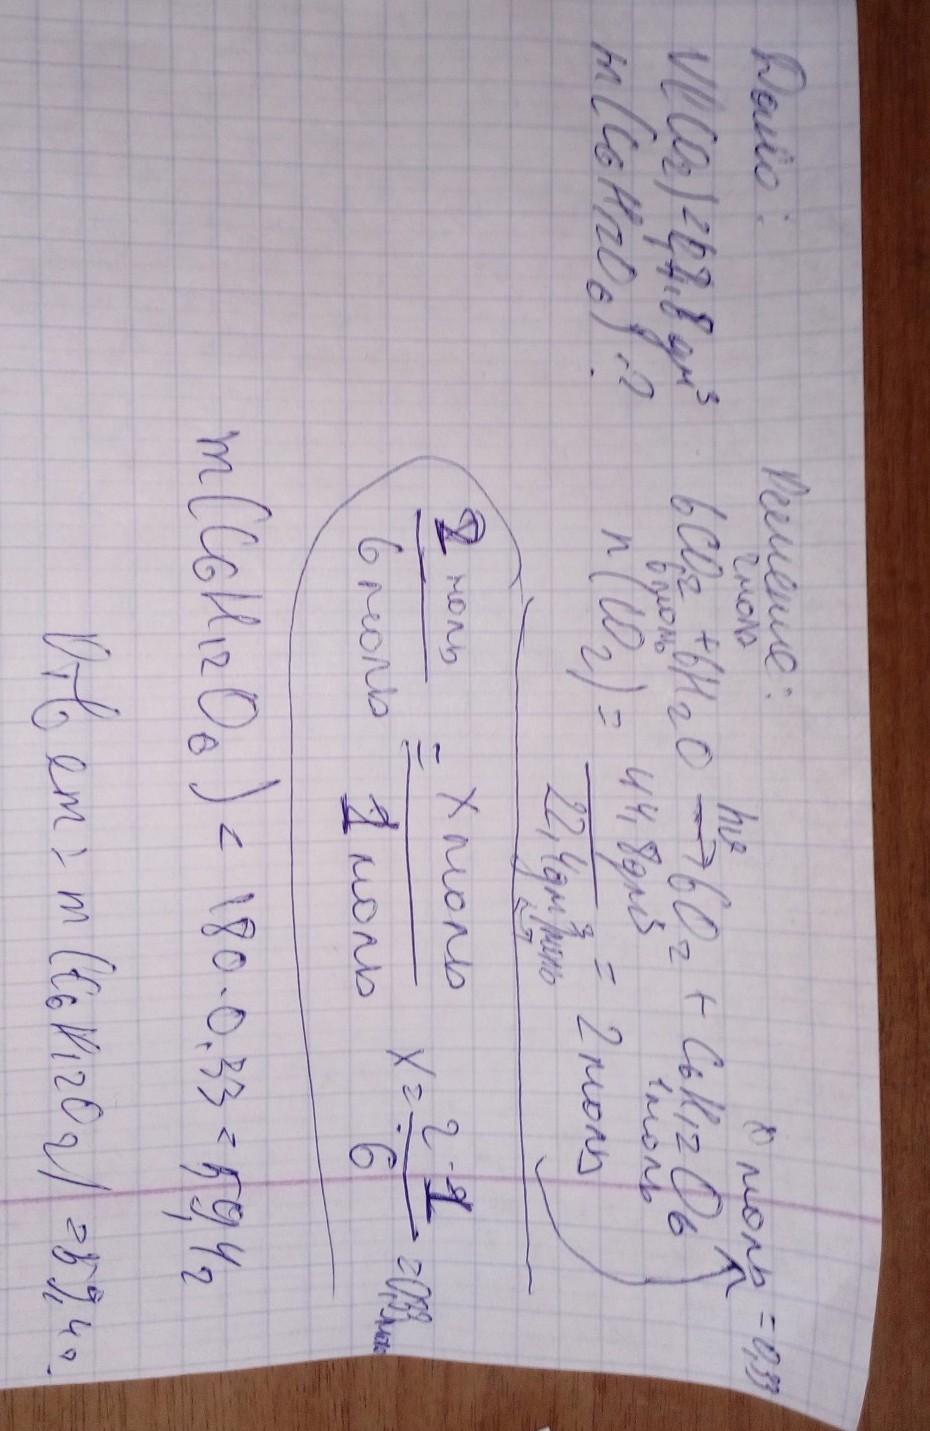 Дано:
V(CO2)=44,8 дм³
m(C6H12O6)-?
Решение:
2 моль
x моль = 0,33
hν
6CO2 + 6H2O → 6O2 + C6H12O6
6 моль
1 моль
n(CO2) = 44,8 дм³ / 22,4 дм³/моль = 2 моль
2 моль / 6 моль = x моль / 1 моль
x = 2·1 / 6 = 0,33 моль
m(C6H12O6) = 180·0,33 = 59,4 г
Ответ: m(C6H12O2) = 59,4 г.